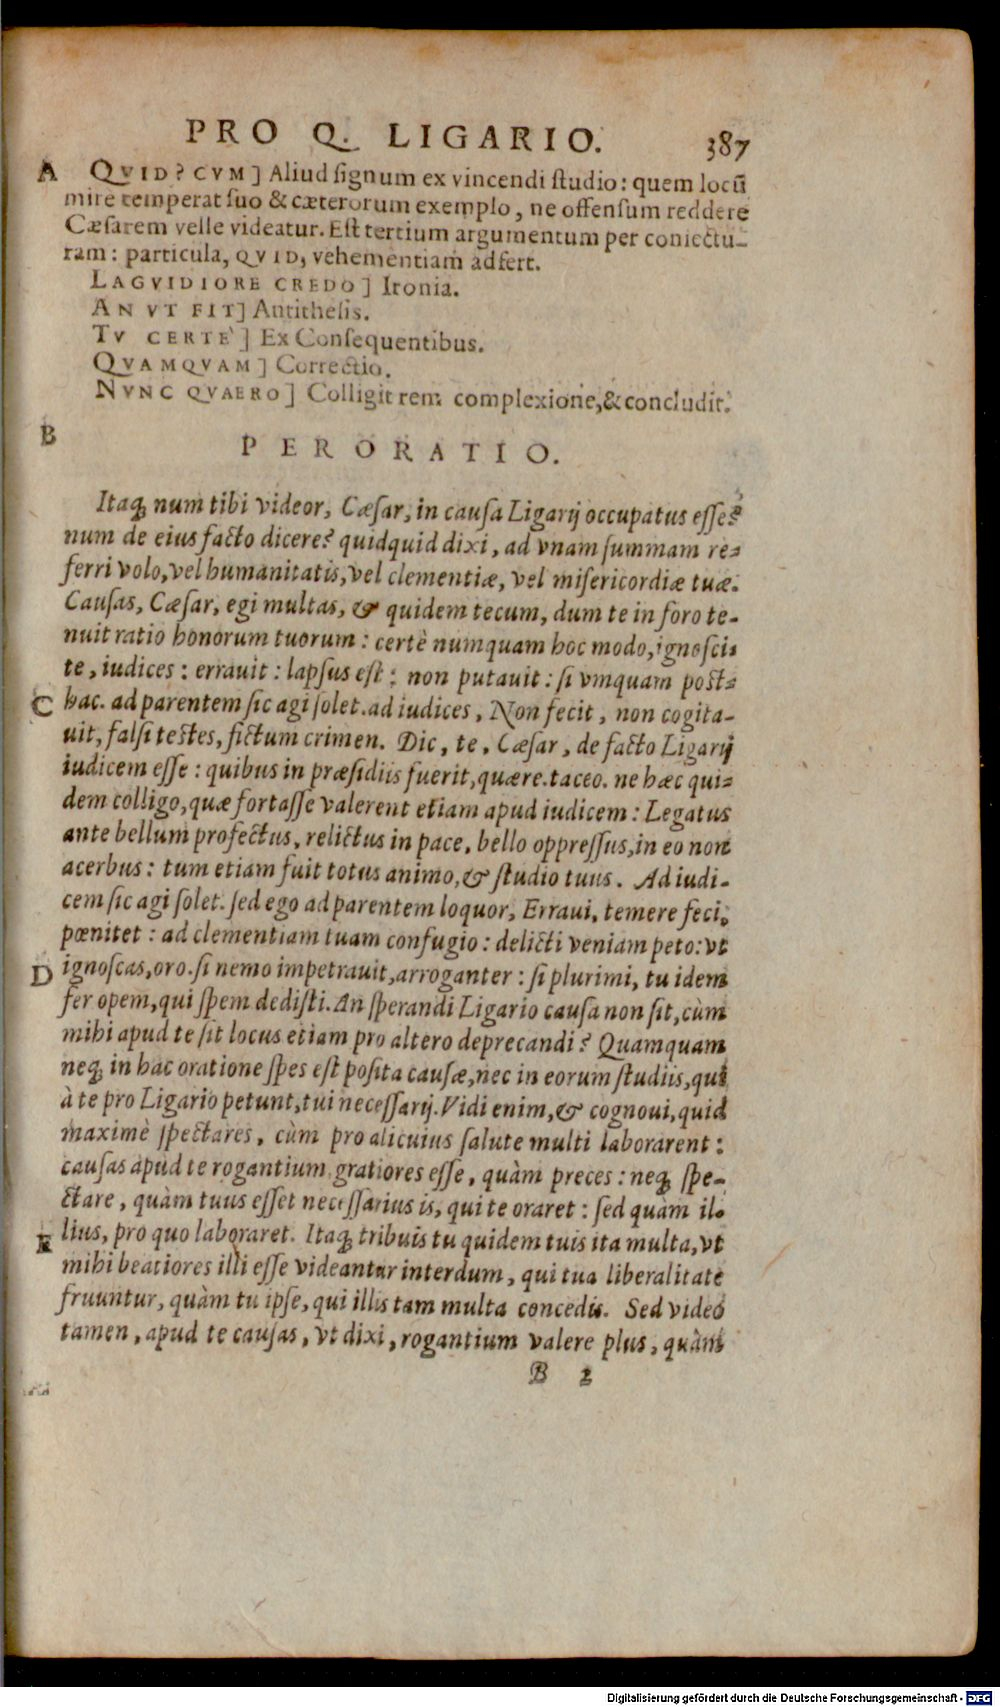 PRO Q. LIGARIO. 387
A QVID? CVM] Aliud signum ex vincendi studio: quem locū
mire temperat suo & cæterorum exemplo, ne offensum reddere
Cæsarem velle videatur. Est tertium argumentum per coniectu-
ram: particula, QVID, vehementiam adfert.
LAGVIDIORE CREDO] Ironia.
AN VT FIT] Antithesis.
TV CERTE`] Ex Consequentibus.
QVAMQVAM] Correctio.
NVNC QVAERO] Colligit rem complexione, & concludit.
B
PERORATIO.
Itaq; num tibi videor, Cæsar, in causa Ligarij occupatus esse?
num de eius facto dicere? quidquid dixi, ad vnam summam re-
ferri volo, vel humanitatis, vel clementiæ, vel misericordiæ tuæ.
Causas, Cæsar, egi multas, & quidem tecum, dum te in foro te-
nuit ratio honorum tuorum: certè numquam hoc modo, ignosci-
te, iudices: errauit: lapsus est: non putauit: si vmquam post-
C hac. ad parentem sic agi solet. ad iudices, Non fecit, non cogita-
uit, falsi testes, fictum crimen. Dic, te, Cæsar, de facto Ligarij
iudicem esse: quibus in præsidiis fuerit, quære. taceo. ne hæc qui-
dem colligo, quæ fortasse valerent etiam apud iudicem: Legatus
ante bellum profectus, relictus in pace, bello oppressus, in eo non
acerbus: tum etiam fuit totus animo, & studio tuus. Ad iudi-
cem sic agi solet. sed ego ad parentem loquor, Erraui, temere feci,
pœnitet: ad clementiam tuam confugio: delicti veniam peto: vt
D ignoscas, oro. si nemo impetrauit, arroganter: si plurimi, tu idem
fer opem, qui spem dedisti. An sperandi Ligario causa non sit, cùm
mihi apud te sit locus etiam pro altero deprecandi? Quamquam
neq; in hac oratione spes est posita causæ, nec in eorum studiis, qui
à te pro Ligario petunt, tui necessarij. Vidi enim, & cognoui, quid
maximè spectares, cùm pro alicuius salute multi laborarent:
causas apud te rogantium gratiores esse, quàm preces: neq; spe-
ctare, quàm tuus esset necessarius is, qui te oraret: sed quàm il-
E lius, pro quo laboraret. Itaq; tribuis tu quidem tuis ita multa, vt
mihi beatiores illi esse videantur interdum, qui tua liberalitate
fruuntur, quàm tu ipse, qui illis tam multa concedis. Sed video
tamen, apud te causas, vt dixi, rogantium valere plus, quàm
B 2
Digitalisierung gefördert durch die Deutsche Forschungsgemeinschaft - DFG